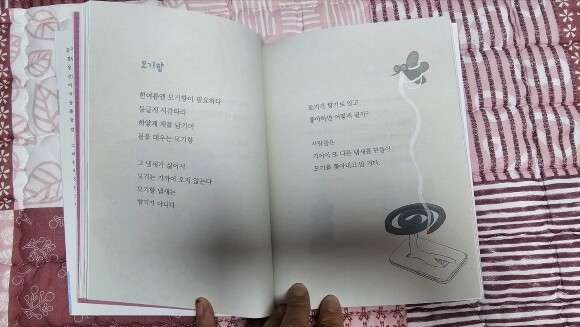 모기향
한여름엔 모기향이 필요하다
둥글진 시간따라
하얗게 재를 남기며
몸을 태우는 모기향
그 냄새가 싫어서
모기는 가까이 오지 않는다
모기향 냄새는
향기가 아니다
모기가 향기로 알고
좋아하면 어떻게 될까?
사람들은
기어이 또 다른 냄새를 만들어
모기를 쫓아내고 말 거다.